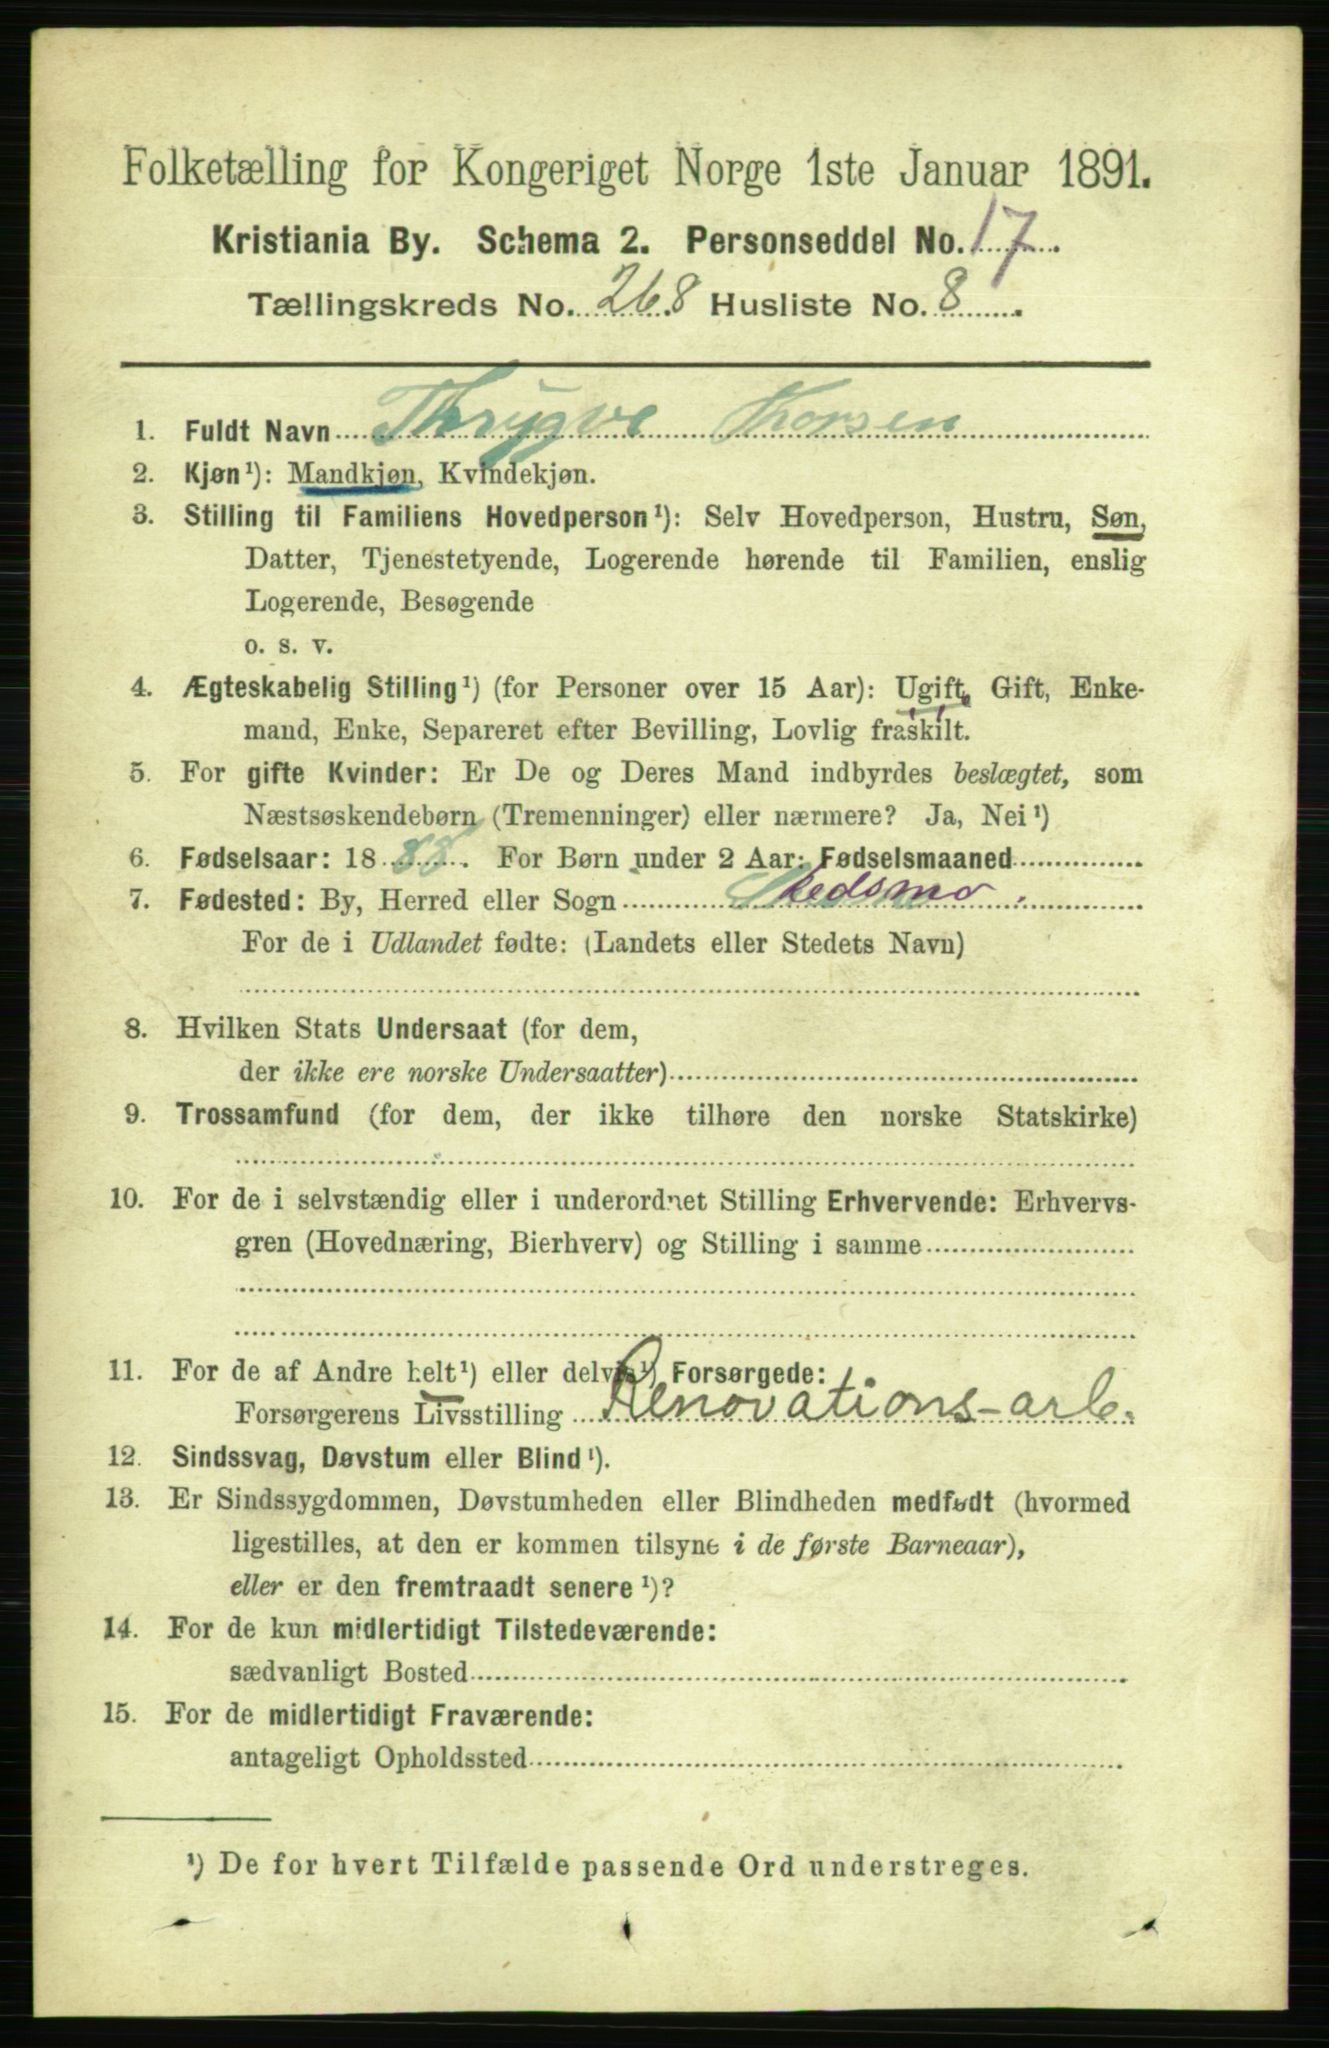 Folketælling for Kongeriget Norge 1ste Januar 1891.
Kristiania By. Schema 2. Personseddel No. 17
Tællingskreds No. 268 Husliste No. 8
1. Fuldt Navn Thrygve Thorsen
2. Kjøn¹): Mandkjøn, Kvindekjøn.
3. Stilling til Familiens Hovedperson¹): Selv Hovedperson, Hustru, Søn,
Datter, Tjenestetyende, Logerende hørende til Familien, enslig
Logerende, Besøgende
o. s. v.
4. Ægteskabelig Stilling¹) (for Personer over 15 Aar): Ugift, Gift, Enke-
mand, Enke, Separeret efter Bevilling, Lovlig fraskilt.
5. For gifte Kvinder: Er De og Deres Mand indbyrdes beslægtet, som
Næstsøskendebørn (Tremenninger) eller nærmere? Ja, Nei¹)
6. Fødselsaar: 1888. For Børn under 2 Aar: Fødselsmaaned
7. Fødested: By, Herred eller Sogn Skedsmo.
For de i Udlandet fødte: (Landets eller Stedets Navn)
8. Hvilken Stats Undersaat (for dem,
der ikke ere norske Undersaatter)
9. Trossamfund (for dem, der ikke tilhøre den norske Statskirke)
10. For de i selvstændig eller i underordnet Stilling Erhvervende: Erhvervs-
gren (Hovednæring, Bierhverv) og Stilling i samme
11. For de af Andre helt¹) eller delvis¹) Forsørgede:
Forsørgerens Livsstilling Renovations-arb.
12. Sindssvag, Døvstum eller Blind¹).
13. Er Sindssygdommen, Døvstumheden eller Blindheden medfødt (hvormed
ligestilles, at den er kommen tilsyne i de første Barneaar),
eller er den fremtraadt senere¹)?
14. For de kun midlertidigt Tilstedeværende:
sædvanligt Bosted
15. For de midlertidigt Fraværende:
antageligt Opholdssted
¹) De for hvert Tilfælde passende Ord understreges.